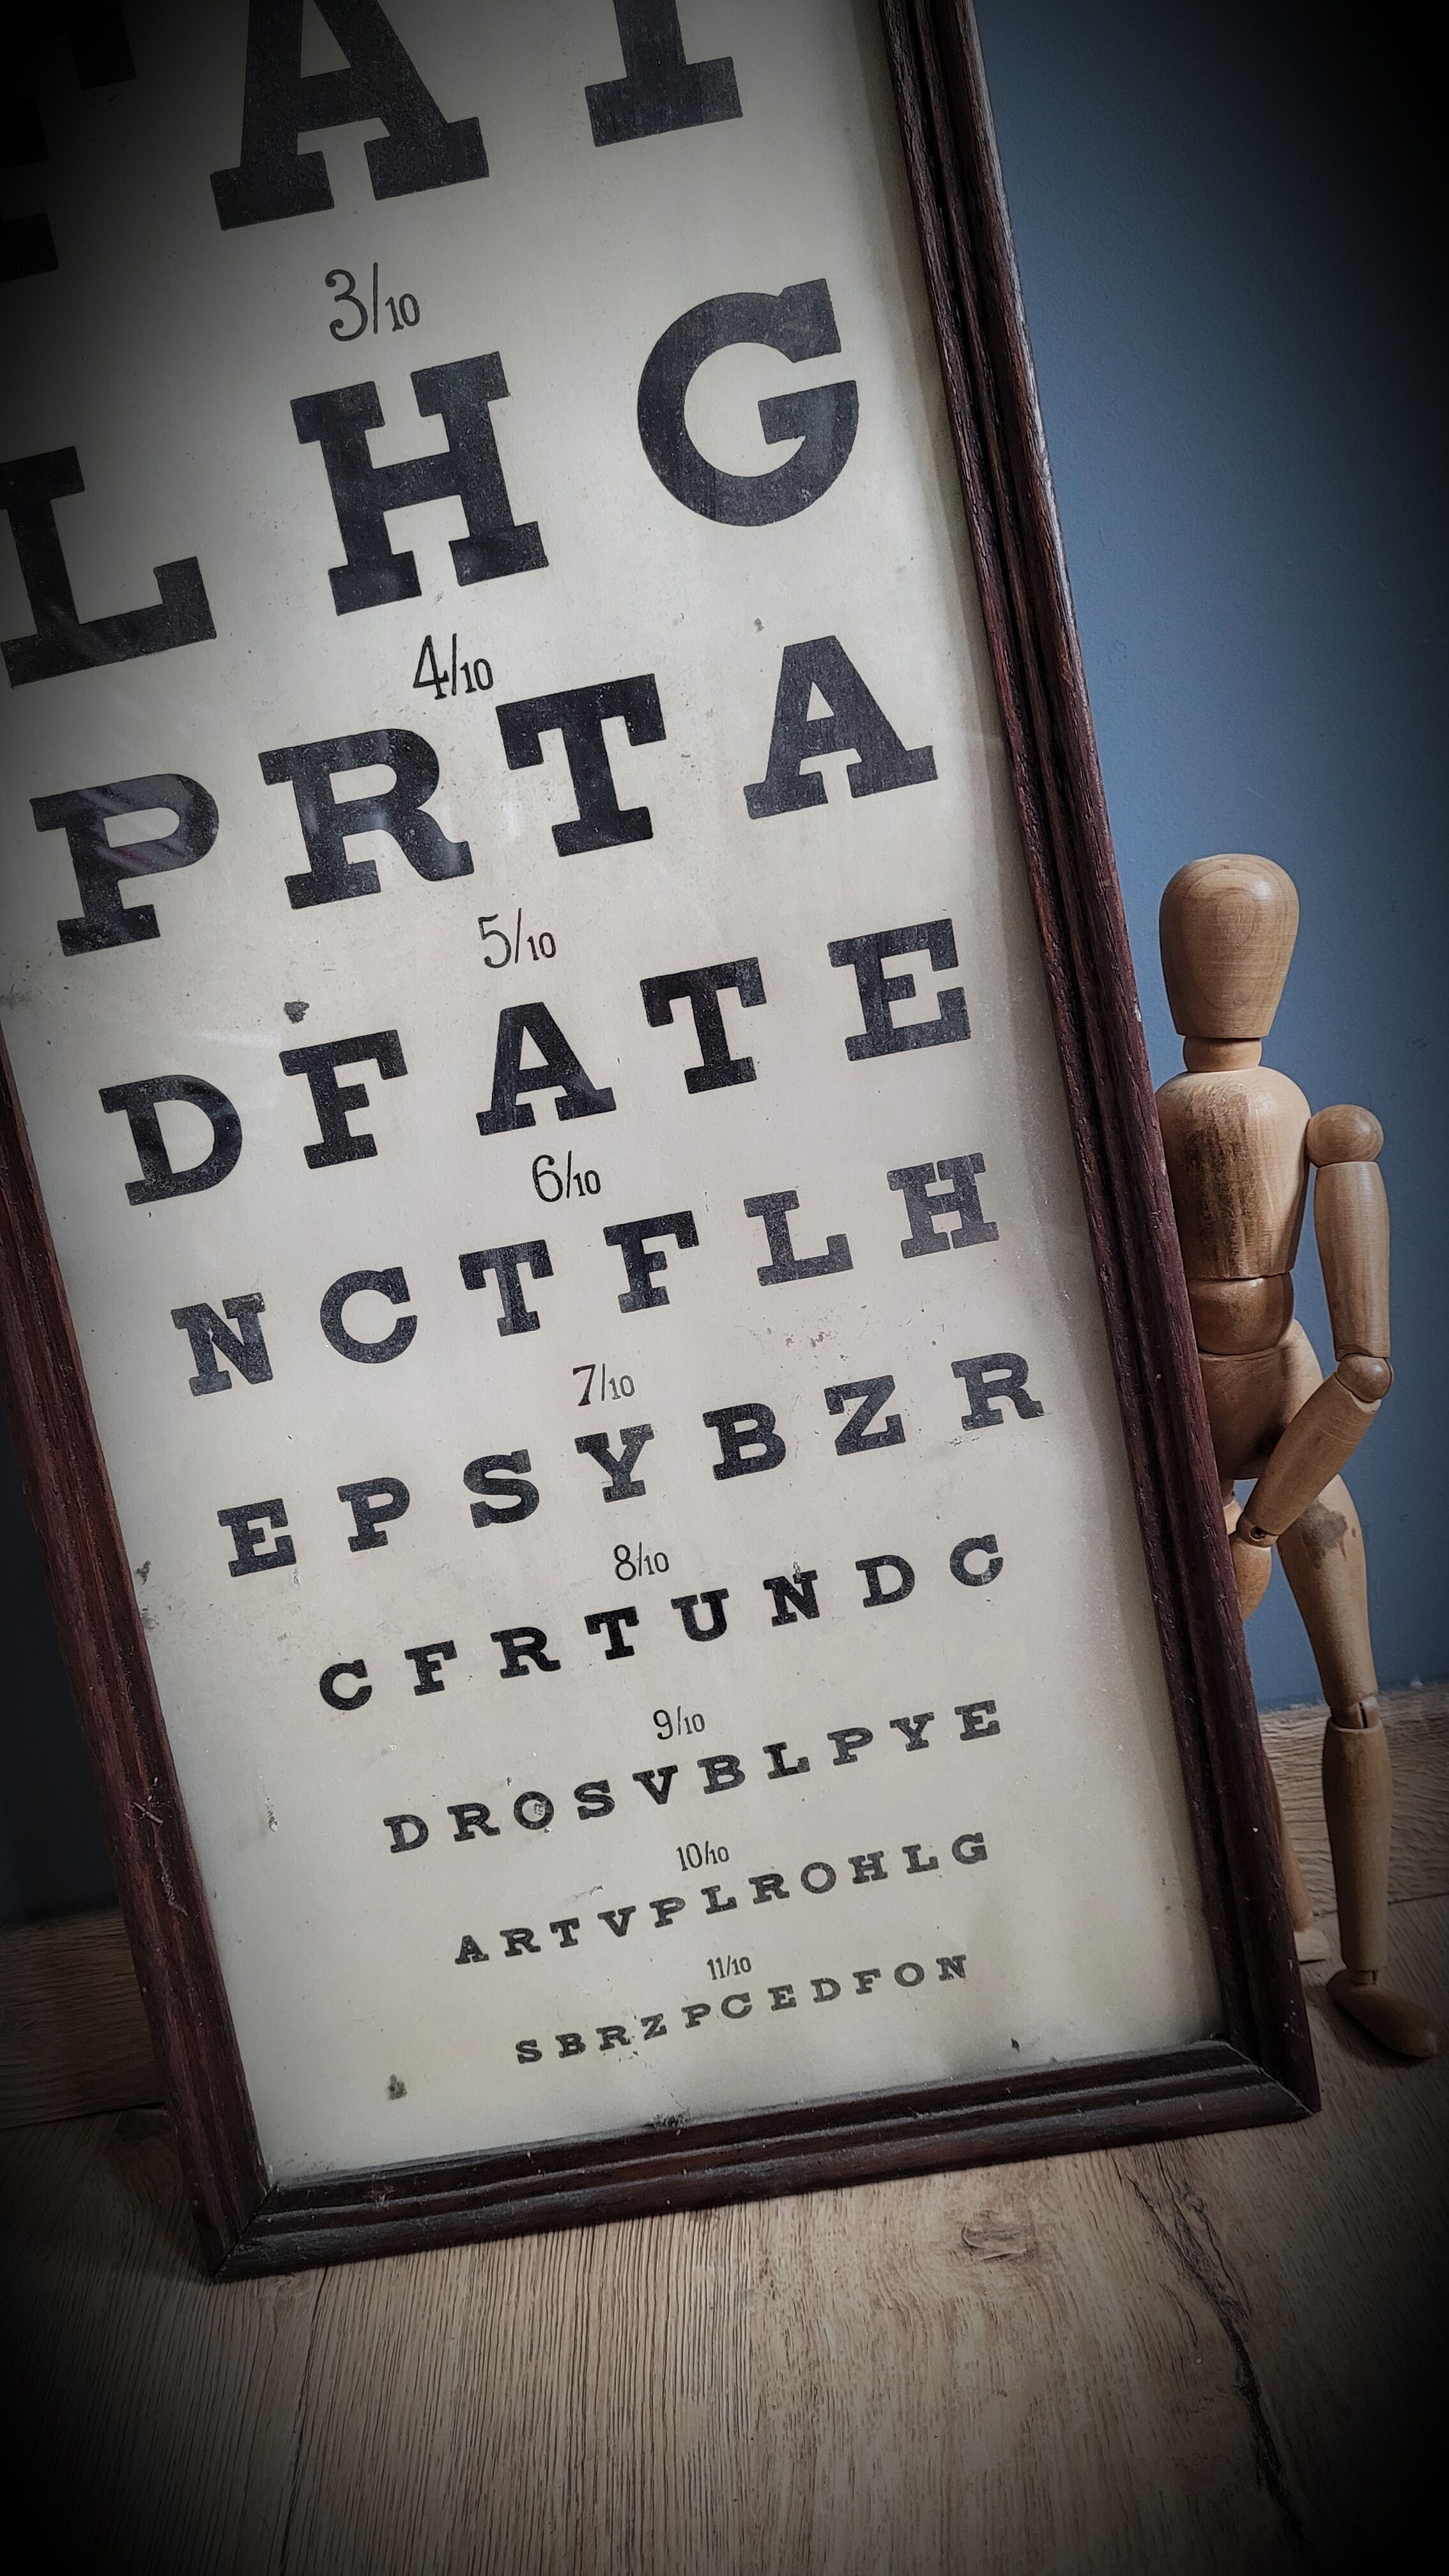 A
3/10
L H G
4/10
P R T A
5/10
D F A T E
6/10
N C T F L H
7/10
E P S Y B Z R
8/10
C F R T U N D C
9/10
D R O S V B L P Y E
10/10
A R T V P L R O H L G
11/10
S B R Z P C E D F O N